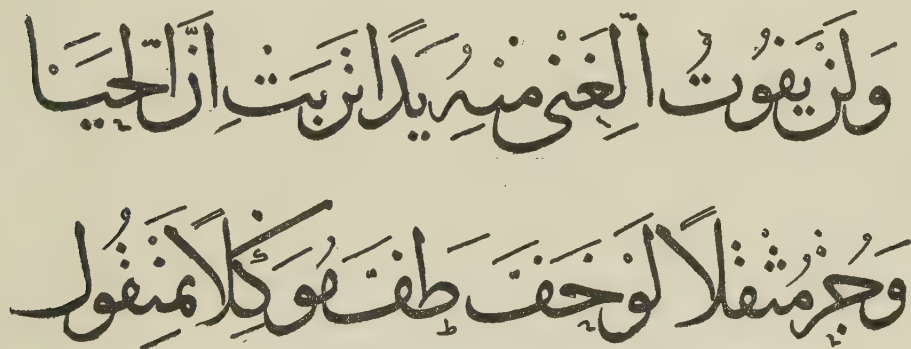 وَلَنْ يَفُوتُ الْغِنٰى مِنْهُ يَدًا تَرِبَتْ اِنَّ الْحَيَا
وَجُرْ مُثْقَلًا لَوْ خَفَّ طَفَّ هُوَ كَلَامَنِقُول